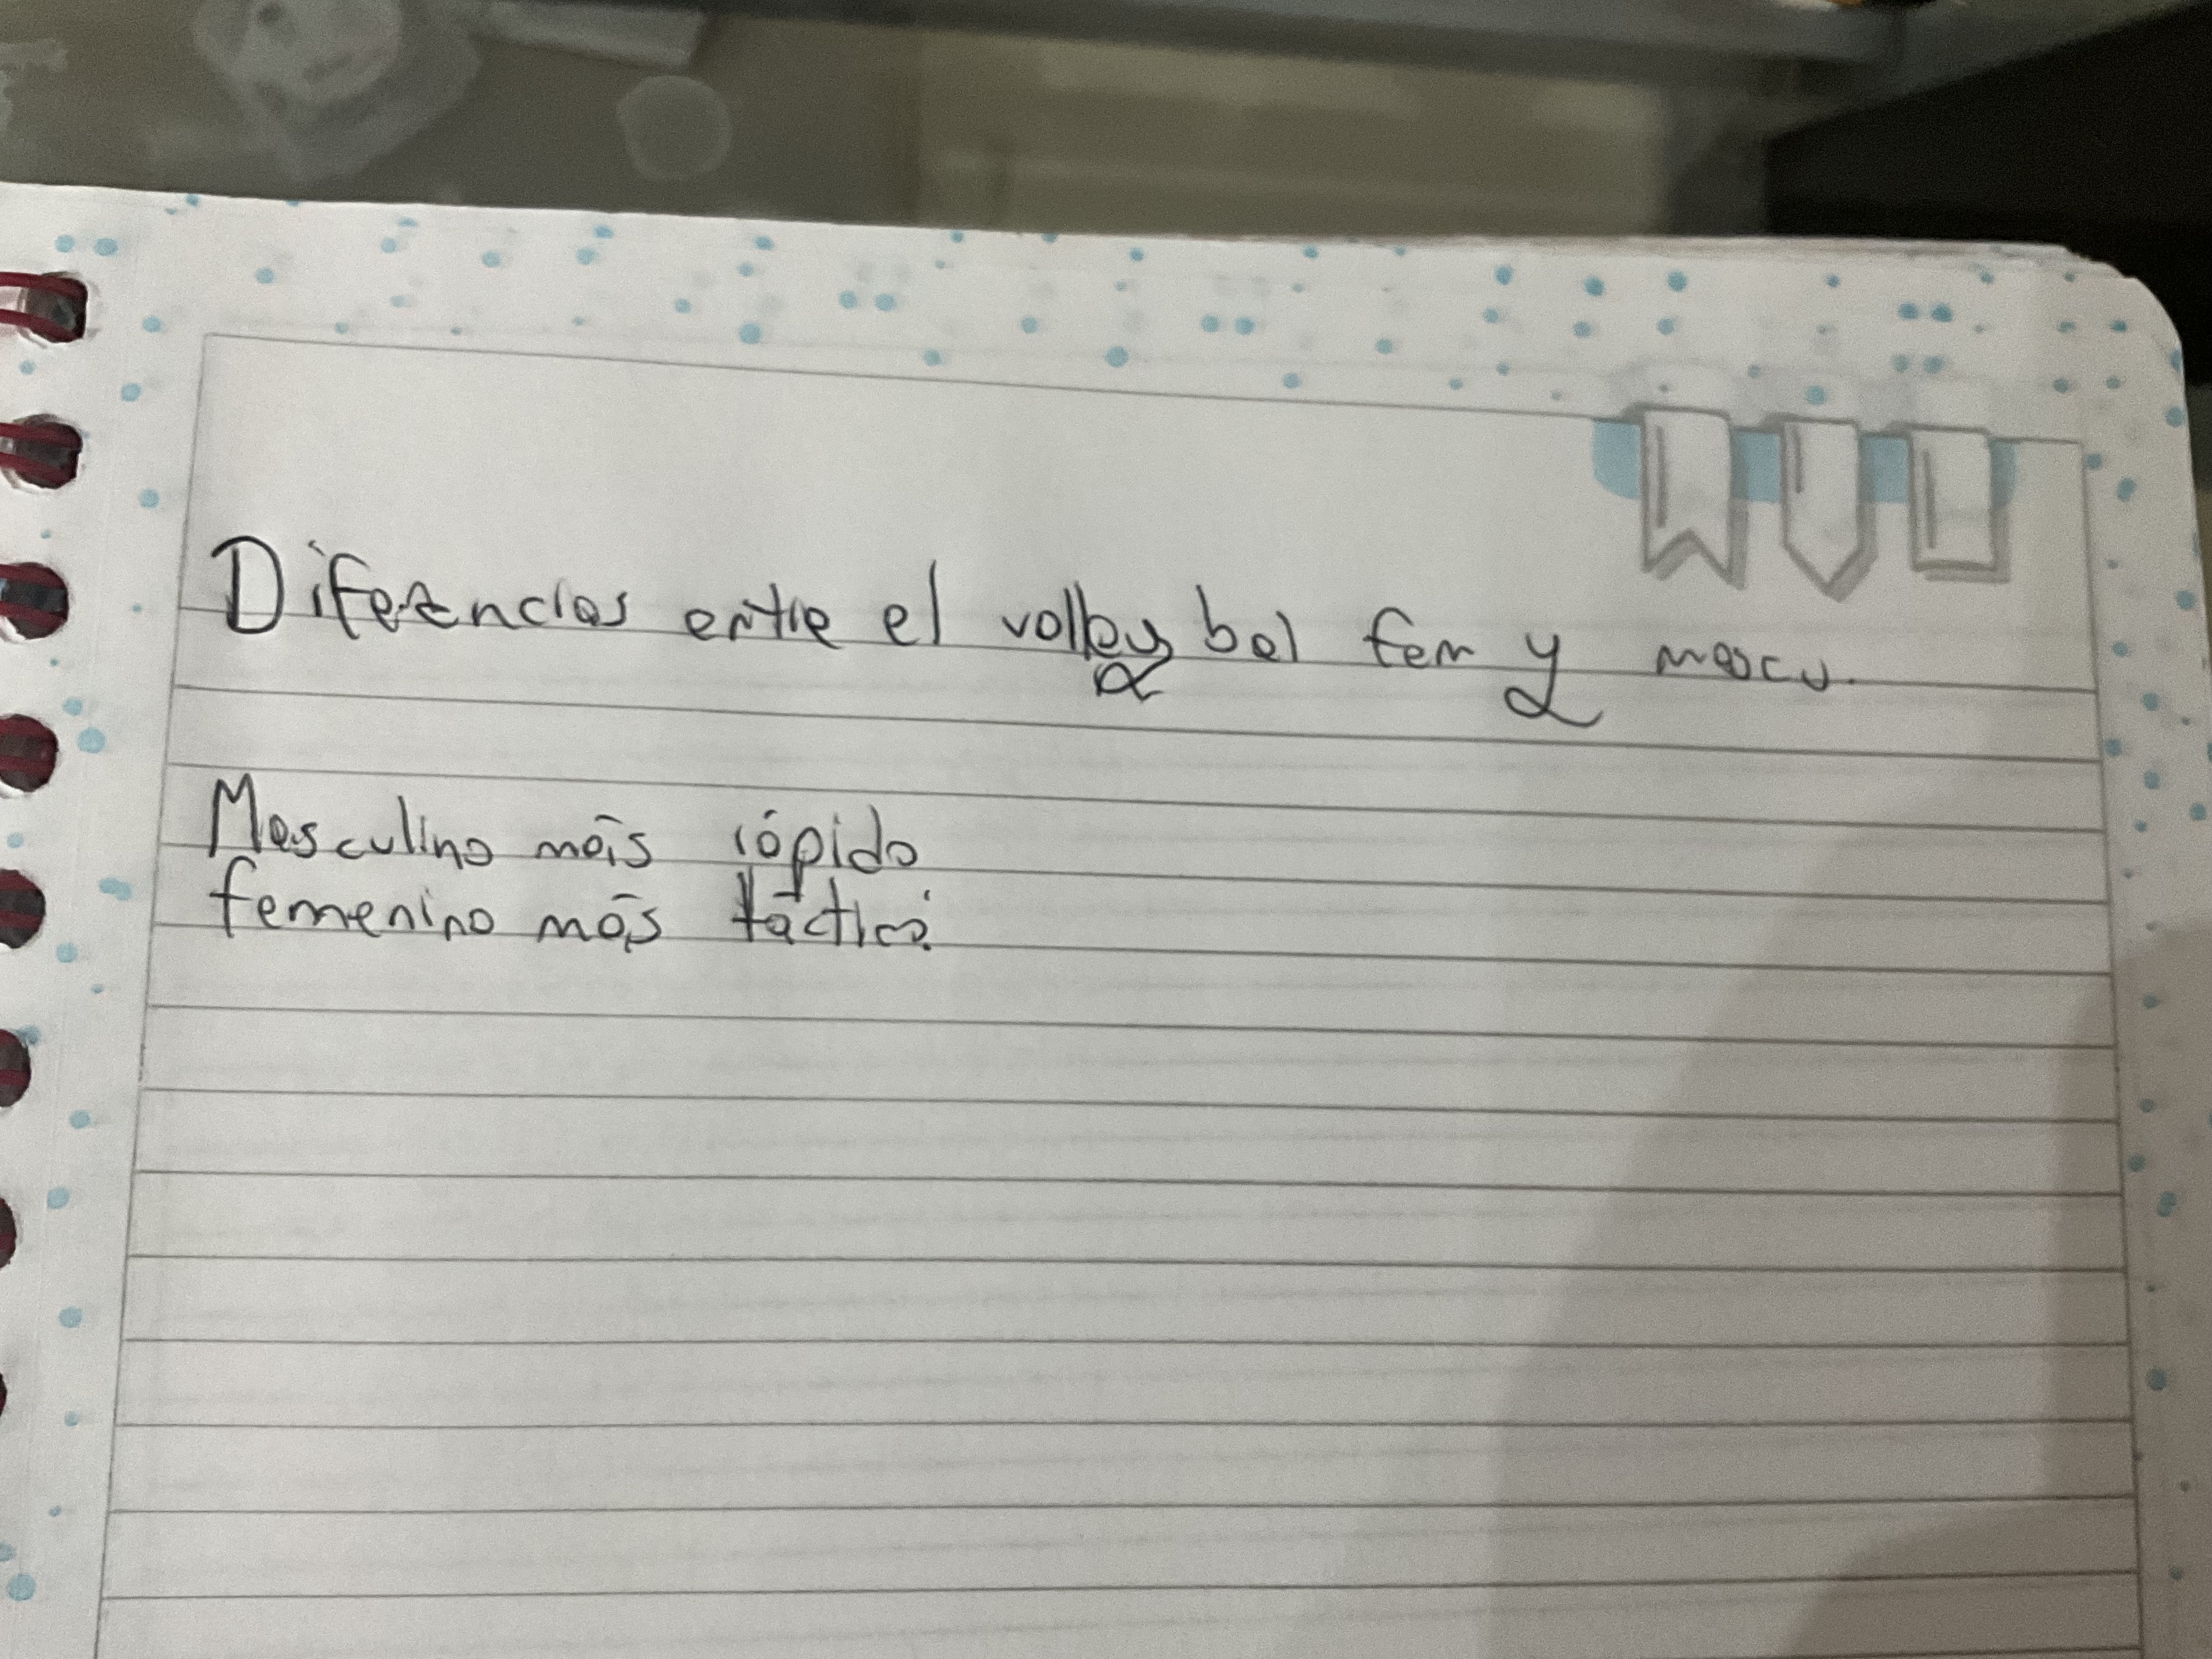 Diferencias entre el volley bal fem y mascu.
Masculino más rápido
femenino más táctico.